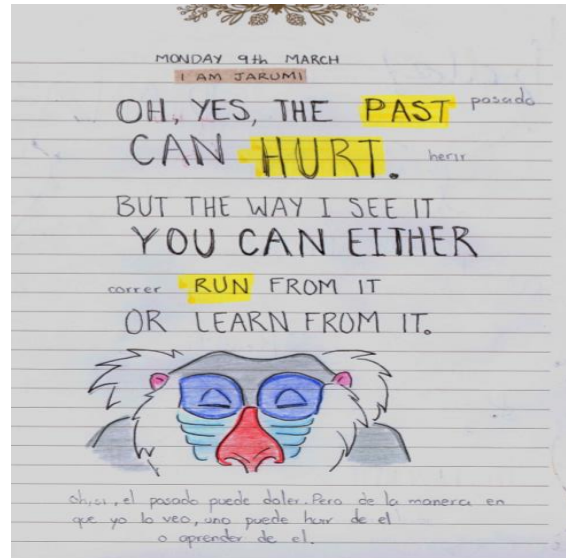 MONDAY 9th MARCH
I AM JARUMI
OH, YES, THE PAST pasado
CAN HURT. herir
BUT THE WAY I SEE IT
YOU CAN EITHER
correr RUN FROM IT
OR LEARN FROM IT.
oh, si, el pasado puede doler. Pero de la manera en
que yo lo veo, uno puede huir de el
o aprender de el.